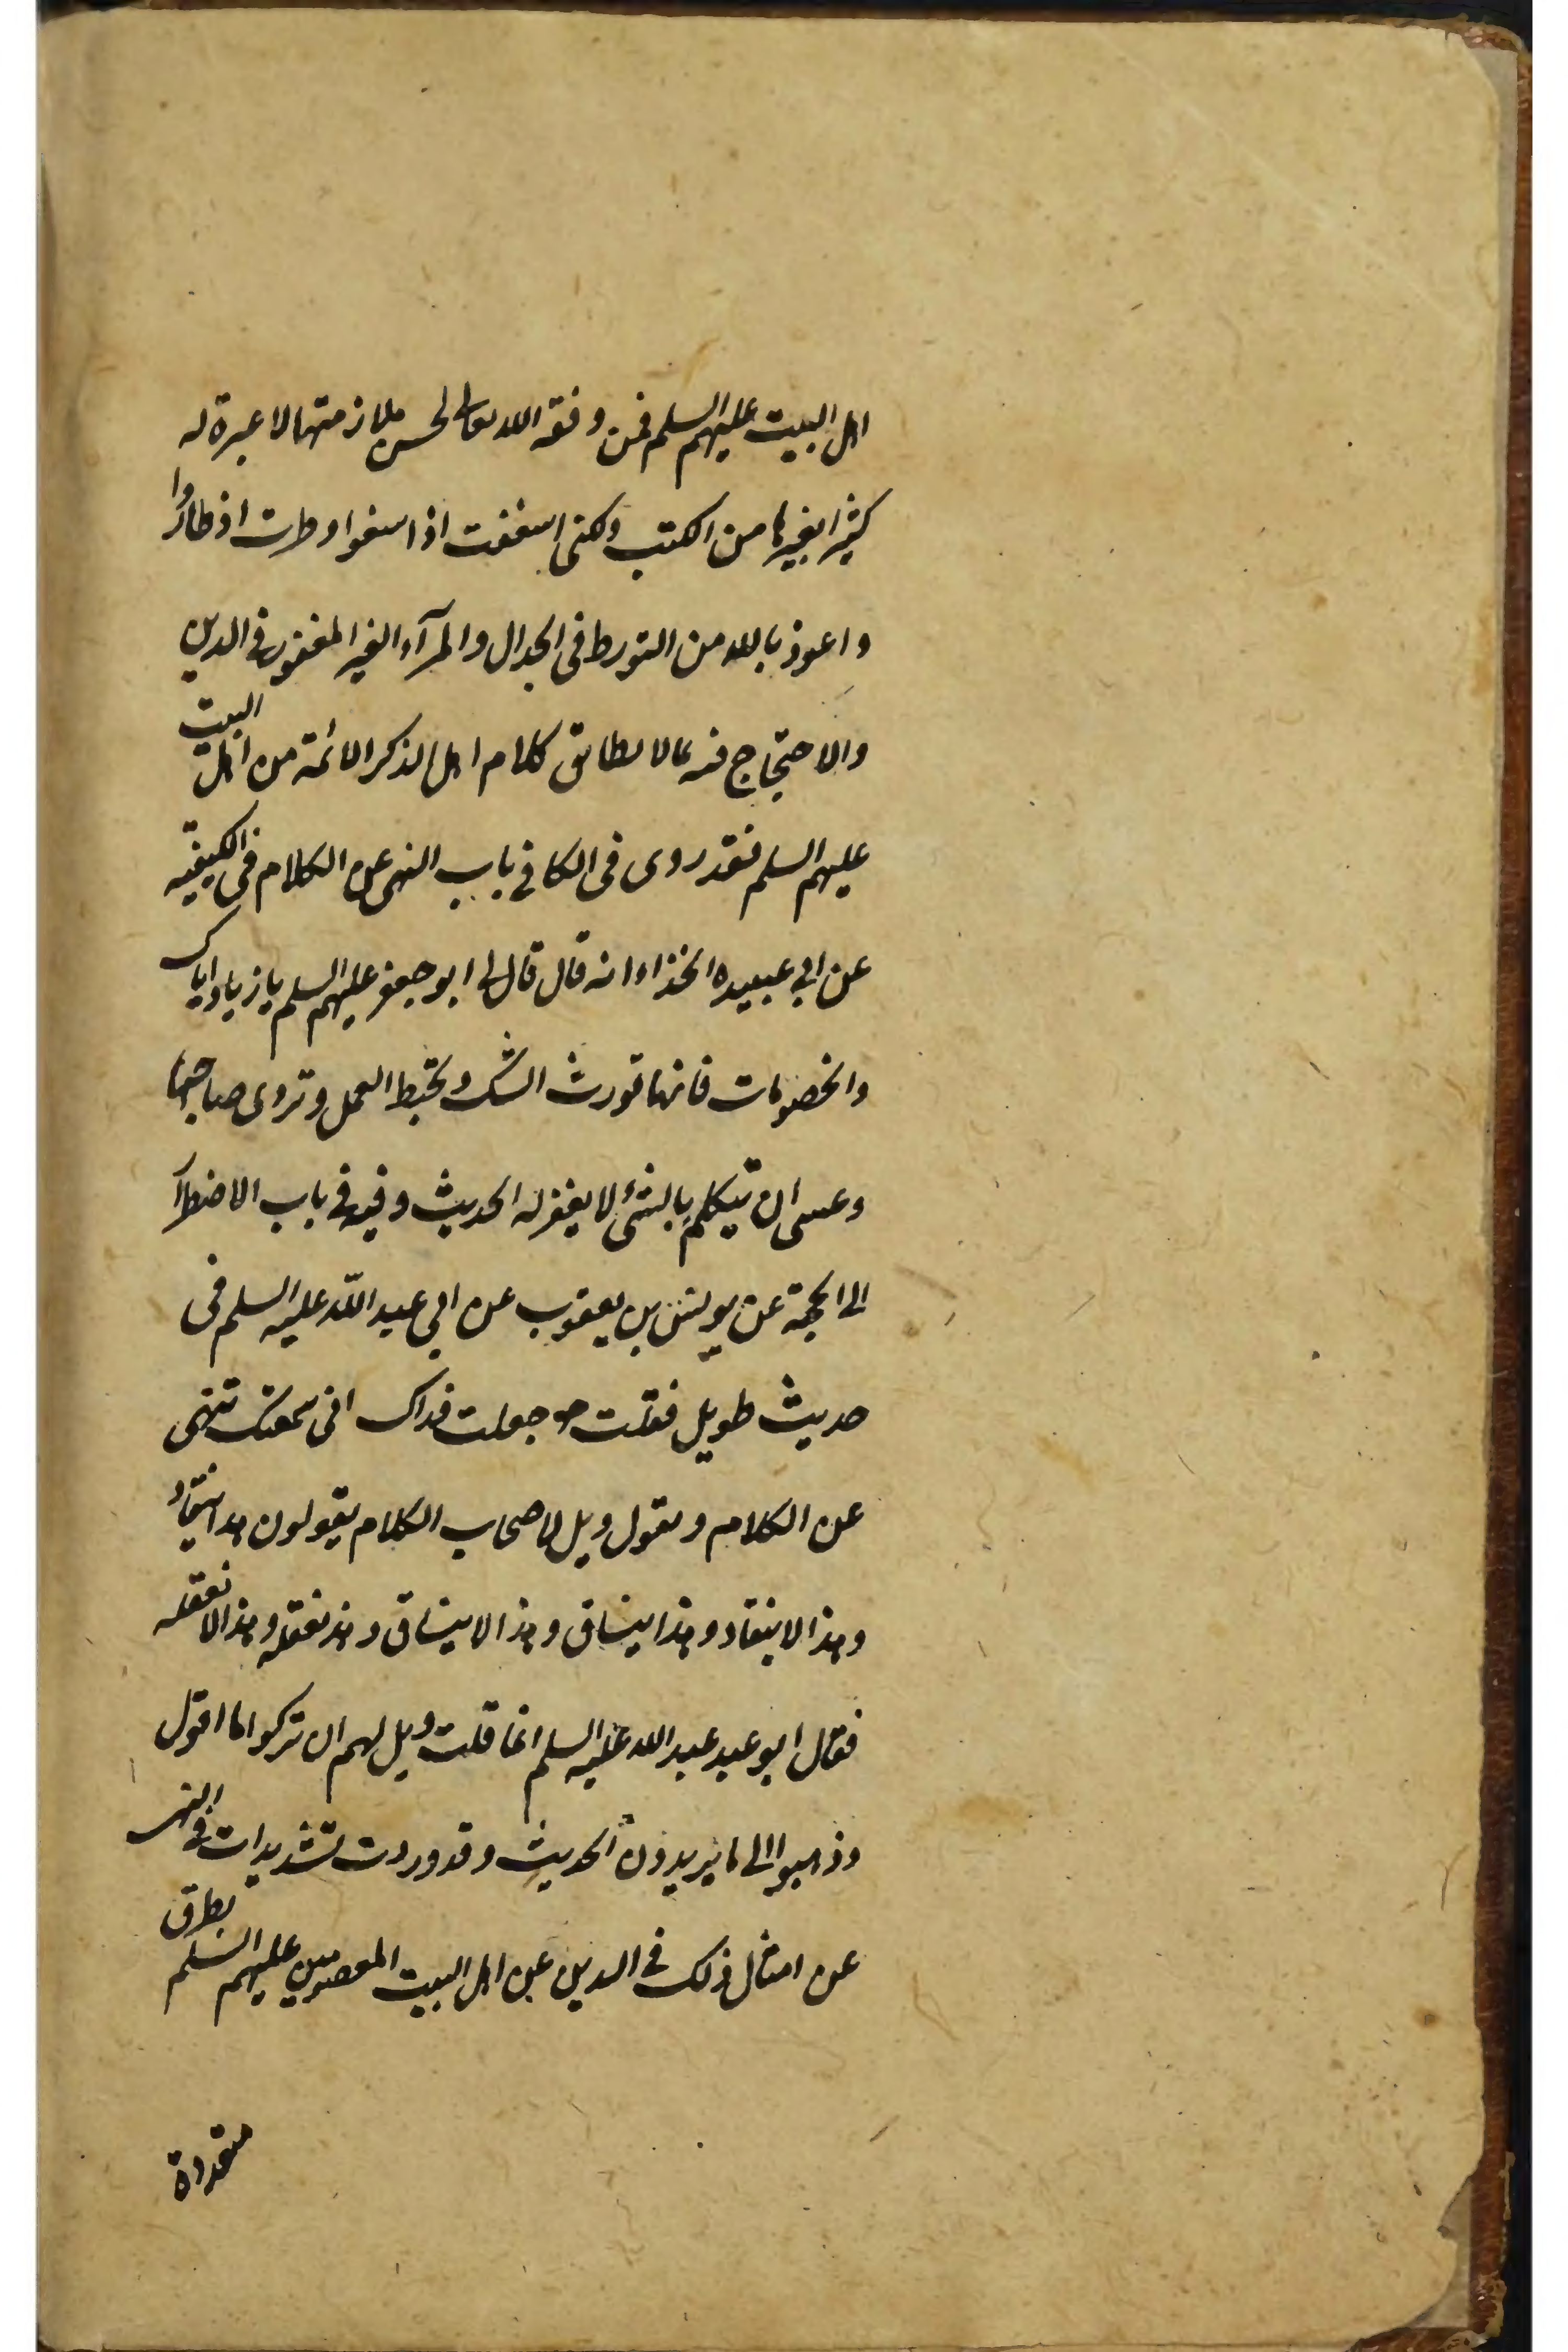 اهل البيت عليهم السلم فمن وفقه الله تعالى لحسن ملازمتها لا عبرة له
كثيرا بغيرها من الكتب ولكنى اسففت اذا سفوا وطرت اذ طاروا
واعوذ بالله من التورط فى الجدال والمرآء الغير المغفور فى الدين
والاحتجاج فيه بما لا يطابق كلام اهل الذكر الائمة من اهل البيت
عليهم السلم فقد روى فى الكافى باب النهى عن الكلام فى الكيفيّه
عن ابى عبيده الحذاء انه قال قال لى ابو جعفر عليهم السلم يا زياد اياك
والخصومات فانها تورث الشك وتحبط العمل وتروى صاحبها
وعسى ان يتكلم بالشئ لا يغفر له الحديث وفيه فى باب الاضطرار
الى الحجة عن يونس بن يعقوب عن ابى عبد اللّه عليه السلم فى
حديث طويل فقلت جعلت فداك انى سمعتك تنهى
عن الكلام وتقول ويل لاصحاب الكلام يقولون هذا ينقاد
وهذا لا ينقاد وهذا ينساق وهذا لا ينساق وهذ نعقله وهذا لا نعقله
فقال ابو عبد عبد الله عليه السلم انما قلت ويل لهم ان تركوا ما اقول
وذهبوا الى ما يريدون الحديث وقد وردت تشديدات فى النهى
عن امثال ذلك فى الدين عن اهل البيت المعصومين عليهم السّلم بطرق
متعددة